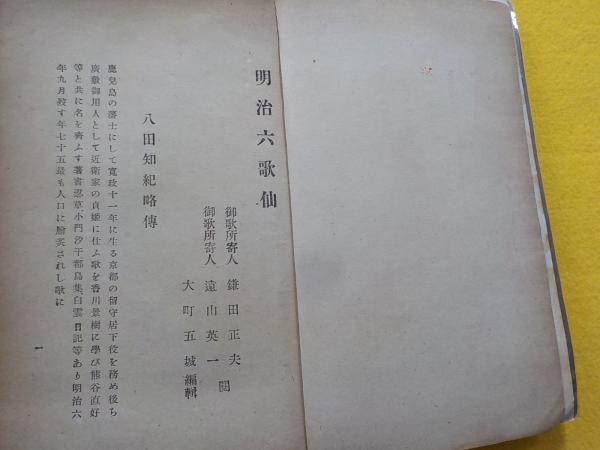 明治六歌仙
御歌所寄人 鎌田正夫
御歌所寄人 遠山英一 閲
大町五城編輯
八田知紀略傳
鹿兒島の藩士にして寛政十一年に生る京都の留守居下役を務め後ち
廣敷御用人として近衛家の貞姫に仕ふ歌を香川景樹に學び熊谷直好
等と共に名を齊ふす著書忍草小門汐干都島集、白雲日記等あり明治六
年九月歿す年七十五最も人口に膾炙されし歌に
一